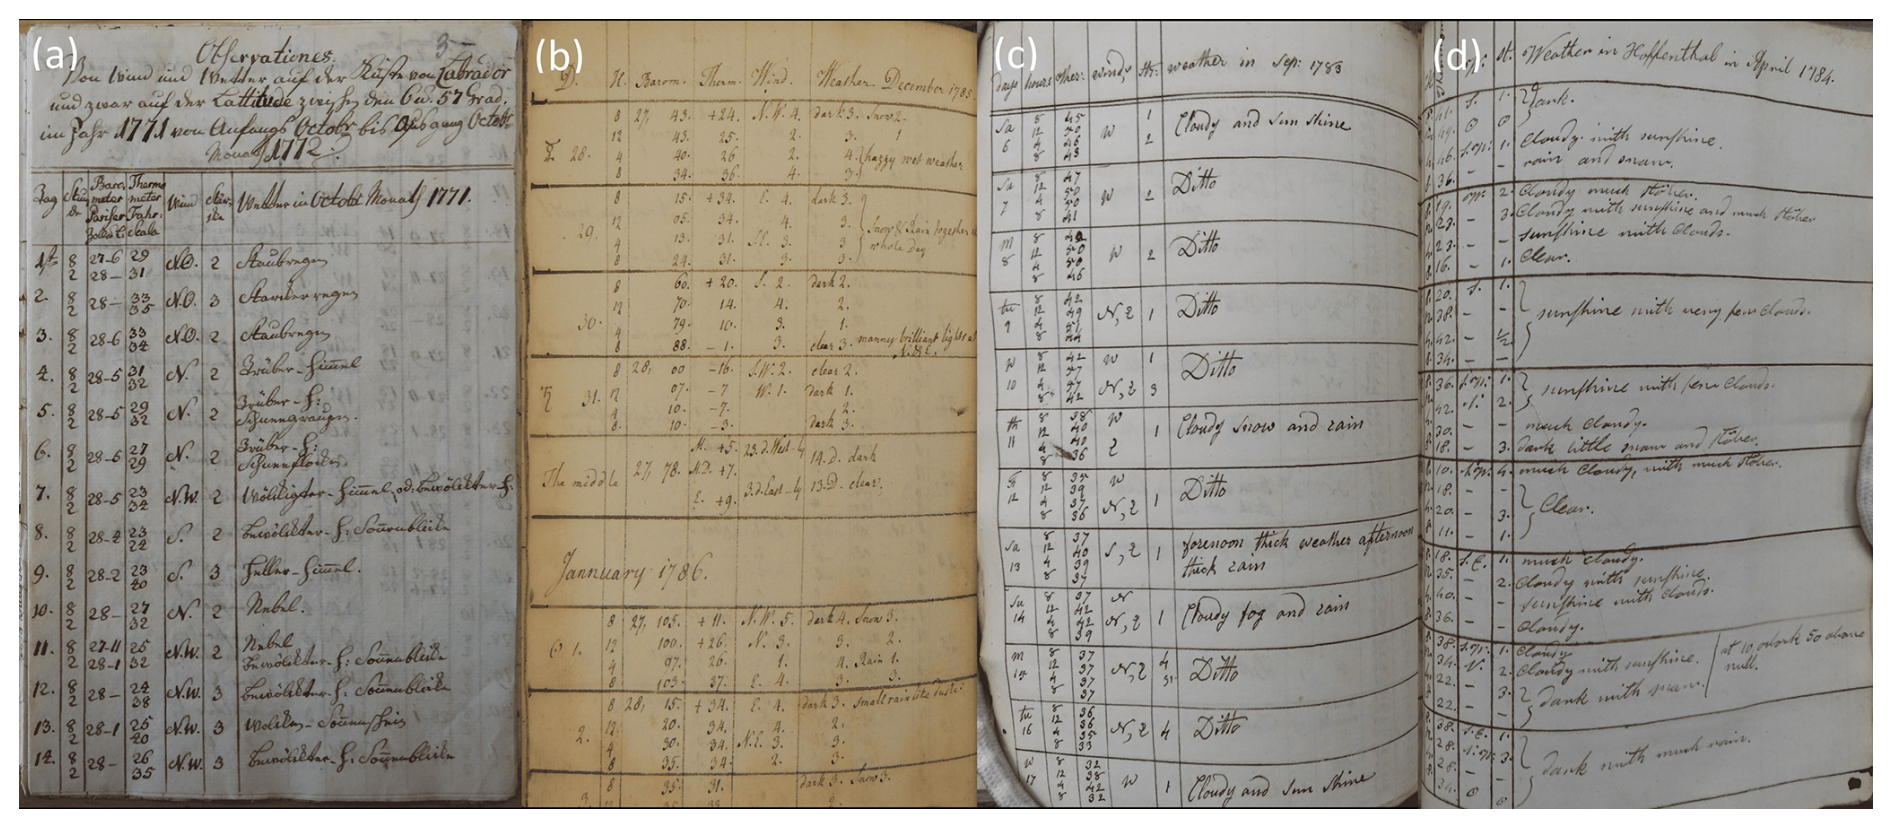 (a)
3
Observationes.
Von Wind und Wetter auf der Küste von Labrador
und zwar auf der Lattitude zwischen den 6 u. 57 Grad,
im Jahr 1771 von Anfangs Octobr bis Ausgang Octobr
Monats 1772.
Tag Stunde Barometer Pariser Zolle Thermometer Fahr: Scala Wind Stärke Wetter in Octobr Monats 1771.
1ste 8 27-6 29 N.O. 2 Staubregen
2 28- 31
2. 8 28- 33 N.O. 3 Starker regen
2 35
3. 8 28-6 33 N.O. 2 Staubregen
2 34
4. 8 28-5 31 N. 2 Trüber-Himel
2 32
5. 8 28-5 29 N. 2 Trüber-H:
2 32
6. 8 28-6 27 N. 2 Trüber-H:
2 29 Schneeflocken
7. 8 28-5 23 N.W. 2 Wolkigter-Himel od: bewölckter-H:
2 34
8. 8 28-4 23 S. 2 bewölckter-H: Sonenblicke
2 24
9. 8 28-2 23 S. 3 Heller-Himel.
2 40
10. 8 28- 27 N. 2 Nebel.
2 32
11. 8 27-11 25 N.W. 2 Nebel
2 28-1 32 bewölckter-H: Sonenblicke
12. 8 28- 24 N.W. 3 bewölckter-H: Sonenblicke
2 38
13. 8 28-1 25 N.W. 3 Wolken-Sonenschein
2 40
14. 8 28- 26 N.W. 3 bewölckter-H: Sonenblicke
2 35
(b)
D. H. Barom. Therm. Wind. Weather. December 1785.
8 27, 43. +24. N.W. 4. dark 3. Snow 2.
12 43. 25. 2. 3. 1
28. 4 40. 26 2. 4. hazzy wet weather
8 34. 36. 4. 3.
8 15. +34. E. 4. dark 3.
12 05. 34. 4. 3. Snow & Rain together
29. 4 13. 31. S.E. 3. 3 whole day
8 24. 31. 3. 3.
8 60. +20. S. 2. dark 2.
12 70. 14. 4. 2.
30. 4 79. 10. 3. 1.
8 88. -1. 3. clear 3. manny brilliant lights at
N. & E.
8 28, 00 -16. S.W. 2. clear 2.
31. 12 07. -7 W. 1. dark 1.
4 10. -7. 2.
8. 10. -3. dark 3.
The middle 27, 78. M. +5. 23. d. West-4 14. D. dark
M.D. +7.
E. +9. 3. d. East-4 13. D. clear.
Jannuary 1786.
8 27, 105. +11. N.W. 5. dark 4. Snow 3.
1. 12 100. +26. N. 3. 3. 2.
4 97. 26. 1. 4. Rain 1.
8 103. 37. E. 4. 3. 3.
8 28, 15. +34. E. 4. dark 3. small rain like dust.
12 20. 34. 4. 2.
2. 4 30. 34. N.E. 3. 3.
8 35. 34. 2. 3.
8 35. 31. dark 3. Snow 3.
(c)
days hours ther: winds str: weather in Sep: 1783
Sa 8 45 W 1 Cloudy and Sun Shine
6 12 50 2
4 46
8 43
Su 8 47 W 2 Ditto
7 12 50
4 50
8 41
m 8 42 W 2 Ditto
8 12 50
4 50
8 46
tu 8 42 N, 2 1 Ditto
9 12 49
4 51
8 44
w 8 42 W 1 Ditto
10 12 47
4 47 N, 2 3
8 42
th 8 38 W 1 Cloudy Snow and rain
11 12 40
4 40 2
8 36
fr 8 35 W 1 Ditto
12 12 39
4 37 N, 2
8 36
Sa 8 37 S, 2 1 forenoon thick weather afternoon
13 12 40 thick rain
4 39
8 37
Su 8 37 N 1 Cloudy fog and rain
14 12 42 N, 2
4 42
8 39
m 8 37 N, 2 4 Ditto
12 37
4 37
8 37
tu 8 36 N, 2 4 Ditto
16 12 36
4 35
8 33
w 8 32 W 1 Cloudy and Sun Shine
17 12 38
4 42
8 32
(d)
St. Weather in Hoffenthal in April 1784.
41. S. 1. Dark.
49. 0 0
46. 1. Cloudy with sunshine.
36. - - rain and snow.
19. 2. Cloudy much stöber.
23. - 3. Cloudy with sunshine and much stöber
23. - - sunshine with Clouds.
16. - 1. Clear.
20. S. 1.
38. - - sunshine with very few Clouds.
42. - ½
34. - -
36. 1. sunshine with few Clouds.
42. N. 2.
30. - - much Cloudy.
18. - 3. dark little snow and stöber.
10. 4. much Cloudy, with much stöber.
18. - -
20. - 3. Clear.
11. - 1.
18. S.E. 1. much Cloudy.
35. - 2. Cloudy with sunshine.
40. - - sunshine with Clouds.
36. - - Cloudy.
38. 1. Cloudy
34. N. 2. Cloudy with sunshine. at 10 o'clock 50 above
22. - 3. dark with snow. null.
22. - -
38. S.E. 1.
28. 3. dark with much rain.
28. - -
34. 0 0